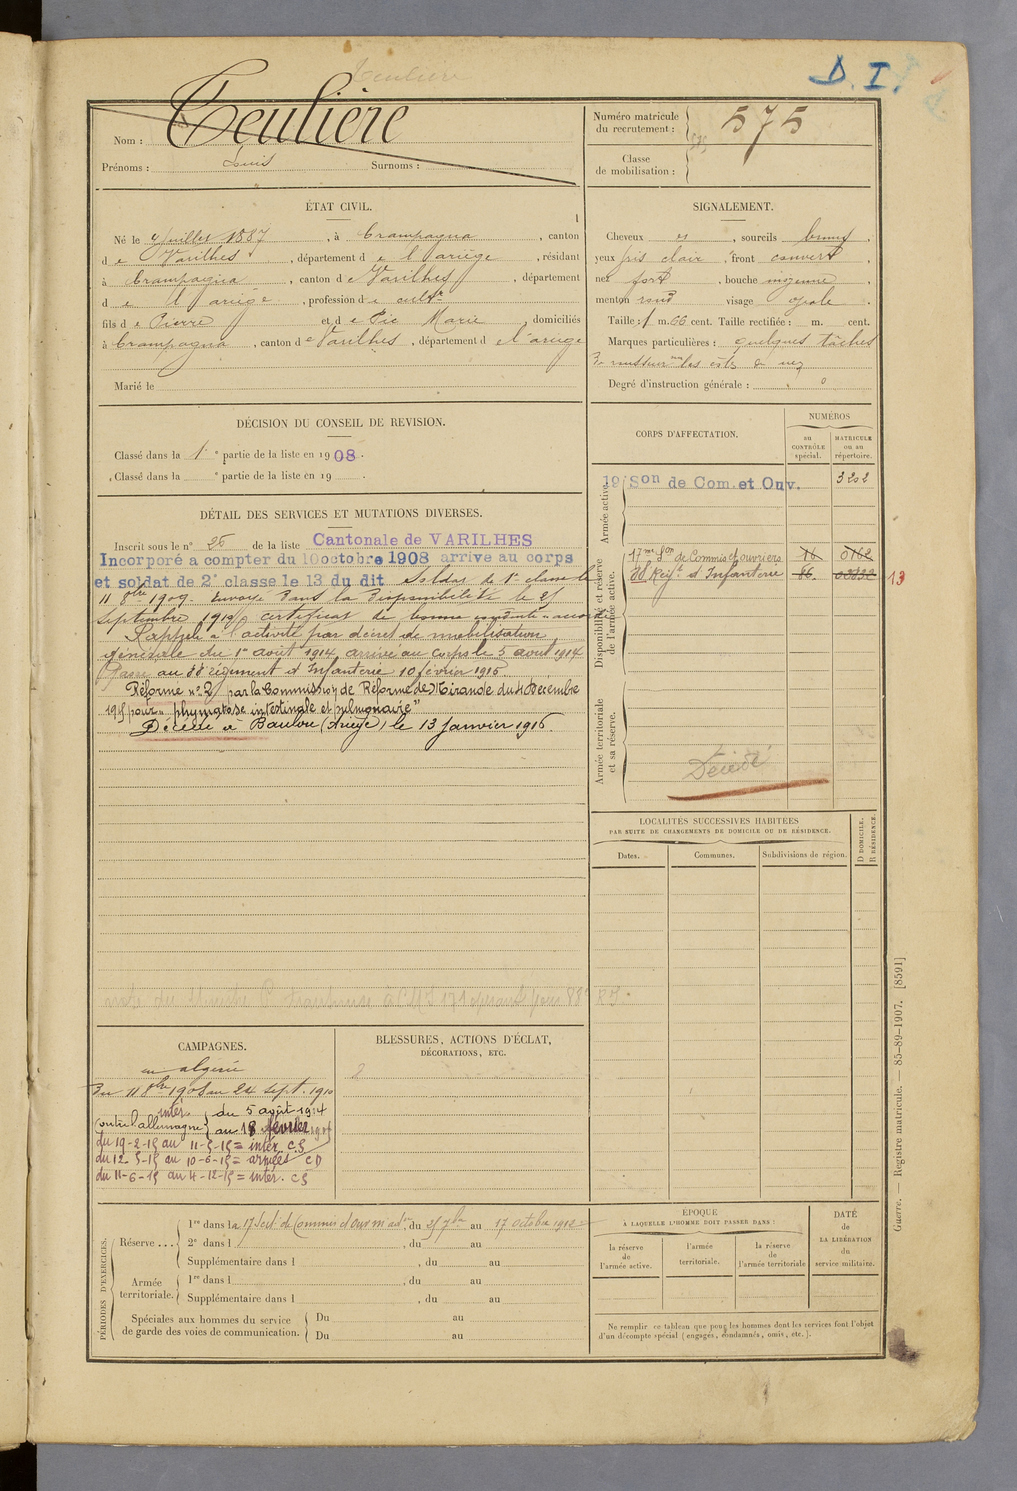 D. I.
Nom : Teulière
Prénoms : Louis Surnoms :
Numéro matricule du recrutement : 575
Classe de mobilisation :
ÉTAT CIVIL.
Né le Juillet 1887, à Crampagna, canton
de Varilhes, département de l'ariège, résidant
à Crampagna, canton de Varilhes, département
de l'ariège, profession de cultr
fils de Pierre et de Pic Marie, domiciliés
à Crampagna, canton de Varilhes, département de l'ariège
Marié le
SIGNALEMENT.
Cheveux et, sourcils bruns,
yeux gris clair, front couvert
nez fort, bouche moyenne
menton rond visage ovale
Taille : 1 m. 66 cent. Taille rectifiée : m. cent.
Marques particulières : quelques tâches
les côtés du nez
Degré d'instruction générale : 0
DÉCISION DU CONSEIL DE REVISION.
Classé dans la 1e partie de la liste en 1908.
Classé dans la e partie de la liste en 19 .
DÉTAIL DES SERVICES ET MUTATIONS DIVERSES.
Inscrit sous le n° 26 de la liste Cantonale de VARILHES
Incorporé à compter du 10 octobre 1908 arrivé au corps
et soldat de 2e classe le 13 du dit Soldat de 1e classe le
11 8bre 1909. Envoyé dans la disponibilité le 25
Septembre 1910, certificat de bonne conduite accordé
Rappelé à l'activité par décret de mobilisation
générale du 1er août 1914, arrivé au corps le 5 août 1914
Passé au 88e régiment d'Infanterie 10 février 1915
Réformé n° 2 par la Commission de Réforme de Mirande du 4 Décembre
1915 pour "phymatose intestinale et pulmonaire"
Décédé à Baulou (Ariège) le 13 Janvier 1916.
CORPS D'AFFECTATION.
NUMÉROS
au CONTRÔLE spécial.
MATRICULE ou au répertoire.
Armée active.
19 Son de Com. et Ouv. 3202
Disponibilité et réserve de l'armée active.
17me Son de Commis et ouvriers 16 0162
88 Régt d'Infanterie 86. 13
Armée territoriale et sa réserve.
Décédé
LOCALITÉS SUCCESSIVES HABITÉES
PAR SUITE DE CHANGEMENTS DE DOMICILE OU DE RÉSIDENCE.
Dates. Communes. Subdivisions de région. D DOMICILE. R RÉSIDENCE.
CAMPAGNES.
en algérie
Du 11 8bre 1908 au 24 sept. 1910
Contre l'allemagne inter. du 5 août 1914
au 18 février 1915
du 19-2-15 au 11-5-15 = intér. CS
du 12 5-15 au 10-6-15 = armées CD
du 11-6-15 au 4-12-15 = intér. CS
BLESSURES, ACTIONS D'ÉCLAT,
DÉCORATIONS, ETC.
PÉRIODES D'EXERCICES.
Réserve ...
1re dans la 17 Sect. de Commis d'Ouv m ad., du 25 7bre au 17 octobre 1912
2e dans l , du au
Supplémentaire dans l , du au
Armée territoriale.
1re dans l , du au
Supplémentaire dans l , du au
Spéciales aux hommes du service de garde des voies de communication.
Du au
Du au
ÉPOQUE
À LAQUELLE L'HOMME DOIT PASSER DANS :
la réserve de l'armée active.
l'armée territoriale.
la réserve de l'armée territoriale
DATE de LA LIBÉRATION du service militaire.
Ne remplir ce tableau que pour les hommes dont les services font l'objet
d'un décompte spécial (engagés, condamnés, omis, etc.).
Guerre. — Registre matricule. — 85-89-1907. [8591]